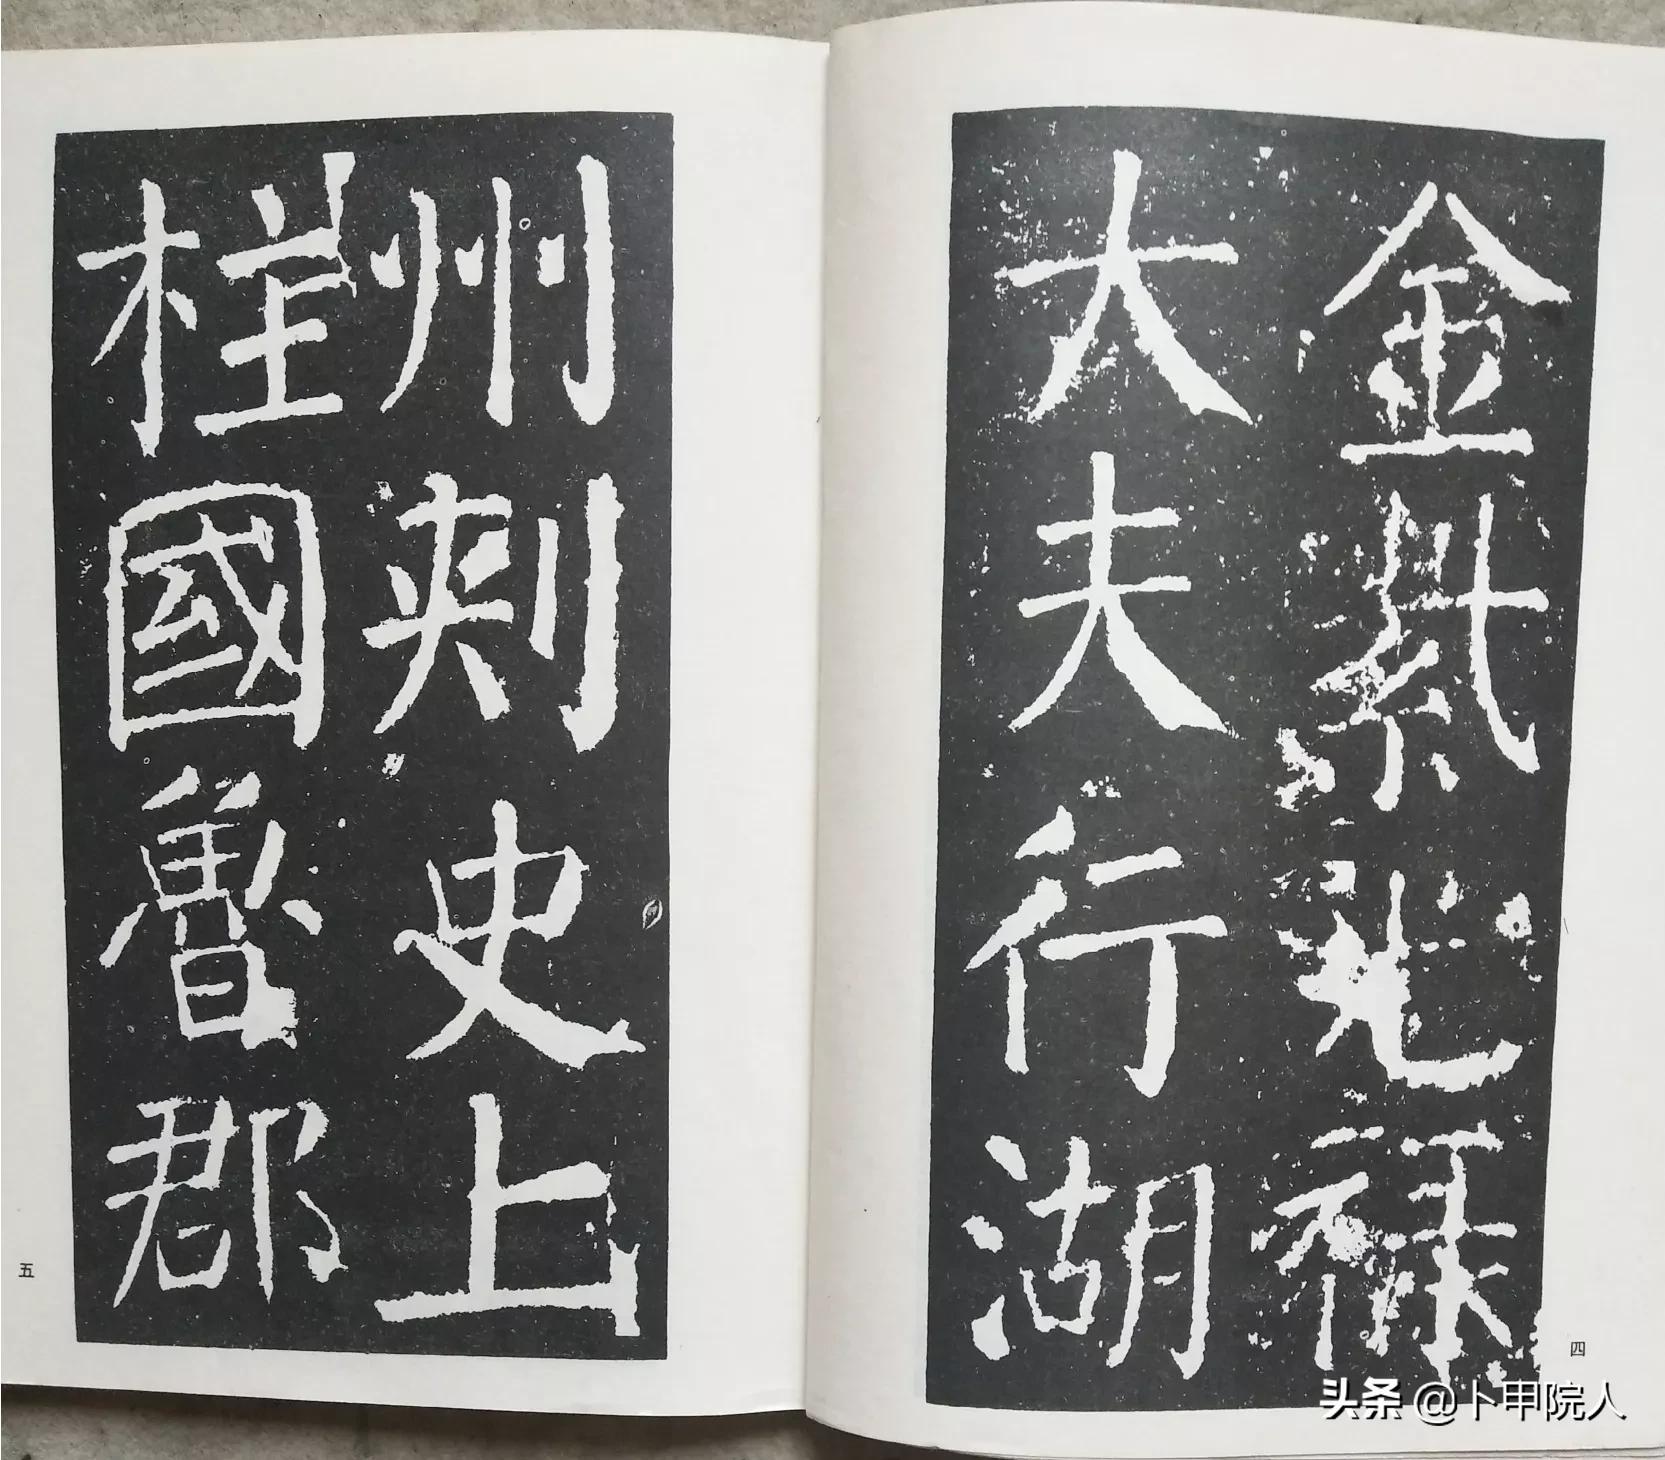 金紫光禄
大夫行湖
四
州刺史上
柱國魯郡
五
头条 @卜甲院人